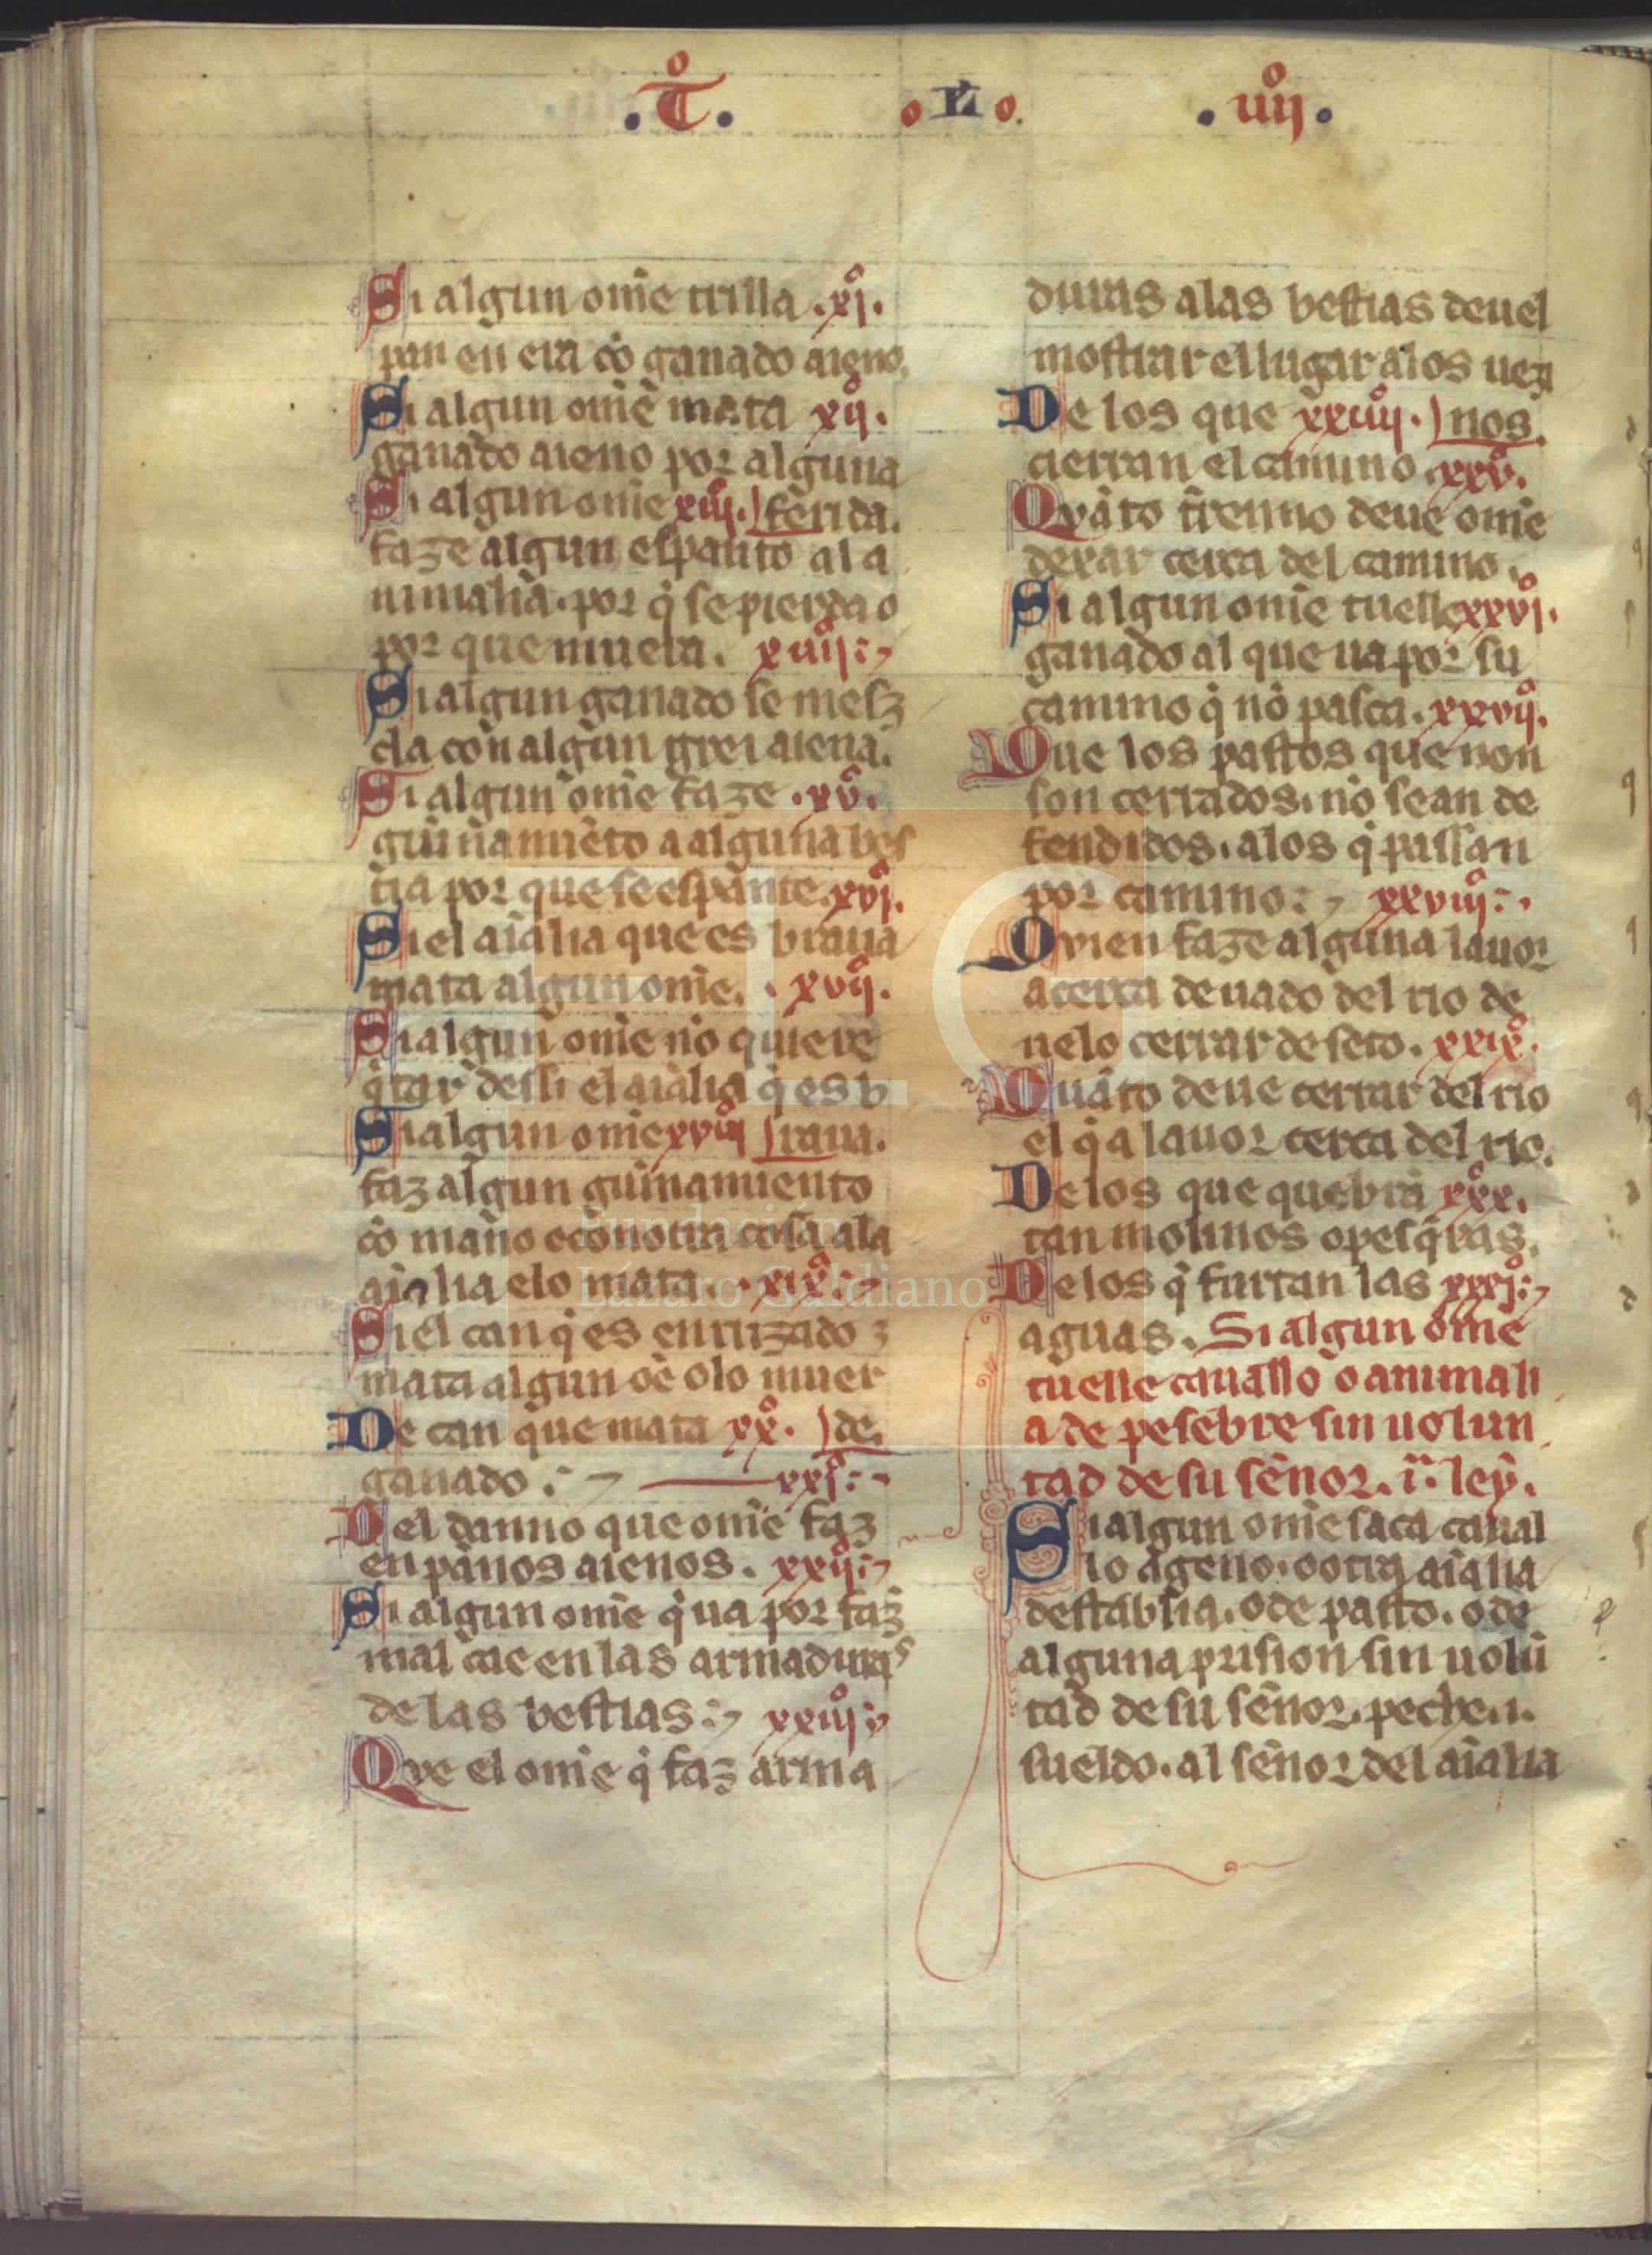 .T̊. .L. .iiij̊.
Si algun om̄e trilla .xj̊.
pan en era cō ganado aieno.
Si algun om̄e mata xij̊.
ganado aieno por alguna
Si algun om̄e xiij̊. ferida.
faze algun espanto al a
nimalia. por q̄ se pierda o
por que muera. xiiij̊.
Si algun ganado se mesz
cla con algun grei aiena.
Si algun om̄e faze .xv̊.
guinamiēto a alguna bes
tia por que se espante. xvj̊.
Si el aīalia que es braua
mata algun om̄e. xvij̊.
Si algun om̄e nō quiere
q̇tar de ssi el aīalia q̄ es b
Si algun om̄e xviij̊ raua.
faz algun guinamiento
cō mano o cō notra cosa a la
aīalia e lo mata. xix̊.
Si el can q̄ es enrizado
mata algun oē o lo muer
De can que mata xx̊. de.
ganado xxj̊.
Del danno que om̄e faz
en panos aienos. xxij̊.
Si algun om̄e q̄ ua por faz̄
mal cae en las armaduras
de las bestias xxiij̊
Que el om̄e q̄ faz arma
duras a las bestias deuel
mostrar el lugar a los uezi
De los que xxiiij̊. nos.
cierran el camino. xxv̊.
Quāto t̄renno deue om̄e
dexar cerca del camino.
Si algun om̄e tuelle xxvj̊.
ganado al que ua por su
camino q̄ nō pasca. xxvij̊.
Que los pastos que non
son cerrados. nō sean de
fendidos. a los q̄ passan
por camino: xxviij̊.
Quien faze alguna lauor
acerca de uado del rio de
uelo cerrar de seto. xxix̊.
Quāto deue cerrar del rio
el q̄ a lauor cerca del rio.
De los que quebrā xxx̊.
tan molinos o pesq̄ras.
De los q̄ furtan las xxxj̊.
aguas. Si algun om̄e
tuelle cauallo o animali
a de pesebre sin uolun
tad de su sēnor. i.ᵃ ley.
Si algun om̄e saca caual
lo ageno. o otra aīalia
destablia. o de pasto. o de
alguna prision sin uolū
tad de su sēnor. peche .i.
sueldo. al sēnor del aīalia
Fundación
Lázaro Galdiano